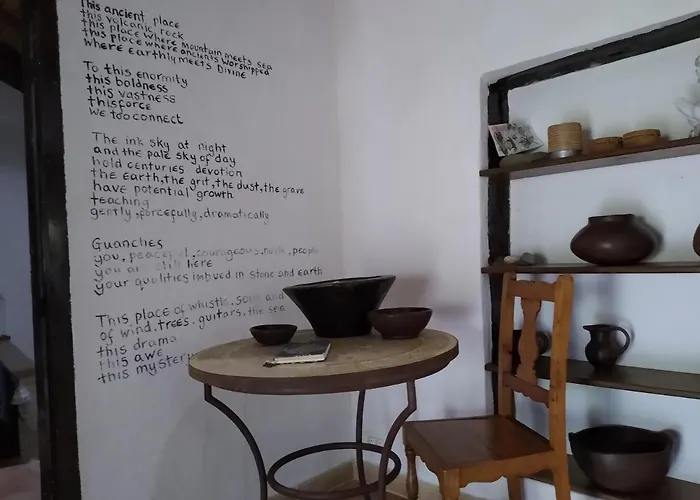 This ancient place
this volcanic rock
this place where mountain meets sea
this place where ancients worshipped
where earthly meets Divine
To this enormity
this boldness
this vastness
this force
we too connect
The ink sky at night
and the pale sky of day
hold centuries devotion
the earth, the grit, the dust, the grave
have potential growth
teaching
gently, forcefully, dramatically
Guanches
you, peaceful, courageous, people
you are still here
your qualities imbued in stone and earth
This place of whistle, song and
of wind, trees, guitars, the sea
this drama
this awe
this mystery